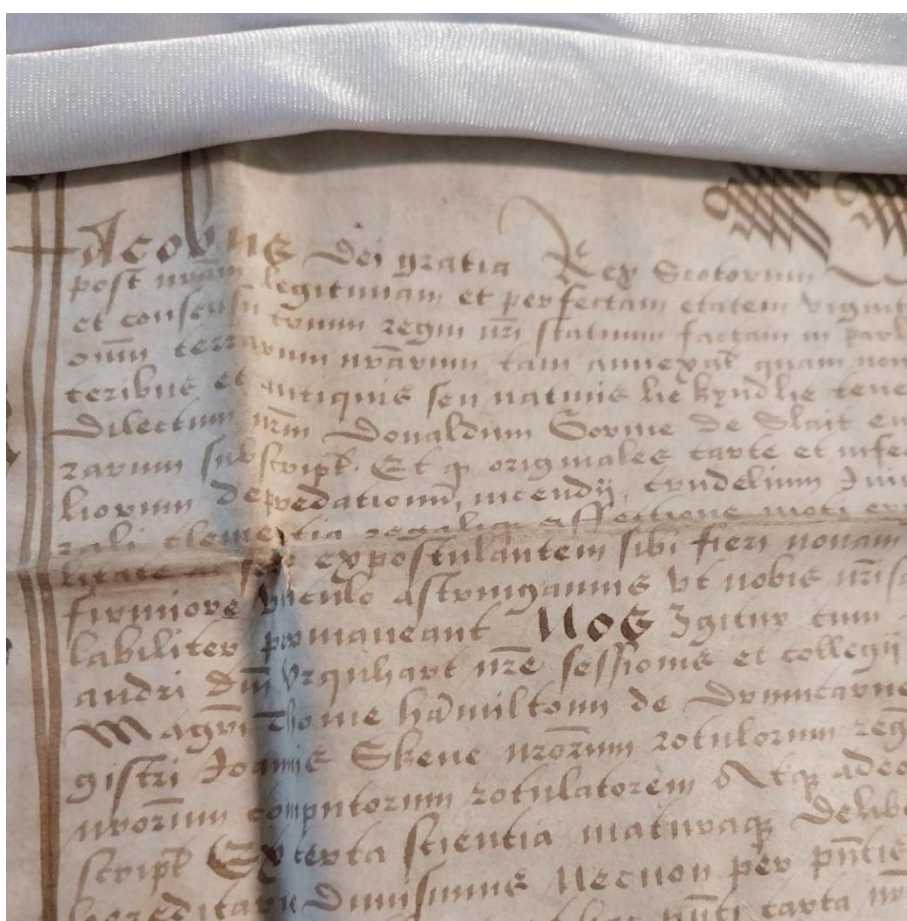 Jacobus Dei gratia Rex Scotorum
post nr̄am legitimam et perfectam etatem viginti
et consensu trium regni nr̄i statuum factam in parl
om̄m terrarum nr̄arum tam annexat̄ quam non
teribus et antiquis seu natiuis lie kyndlie tene
Dilectum nr̄m Donaldum Gorme de Slait
rarum subscript̄. Et q̄ originales carte et infeo
liorum depredationū, incendij, crudelium
rali clementia regalis affectione moti
expostulantem sibi fieri nouam
firmiore vinculo astringamus vt nobis nr̄is
labiliter permaneant Nos Igitur cum
andri Dn̄i Vrquhart nr̄e sessionis et collegij
Magr̄i Thome hamiltoun de Drumcarne
gistri Joannis Skene nr̄orum rotulorum reg
nr̄orum computorum rotulatorem Atq̄ adeo
script̄ Ex certa scientia maturaq̄ Delibe
hereditarie Dimisimus Necnon per pn̄tis
carta nr̄